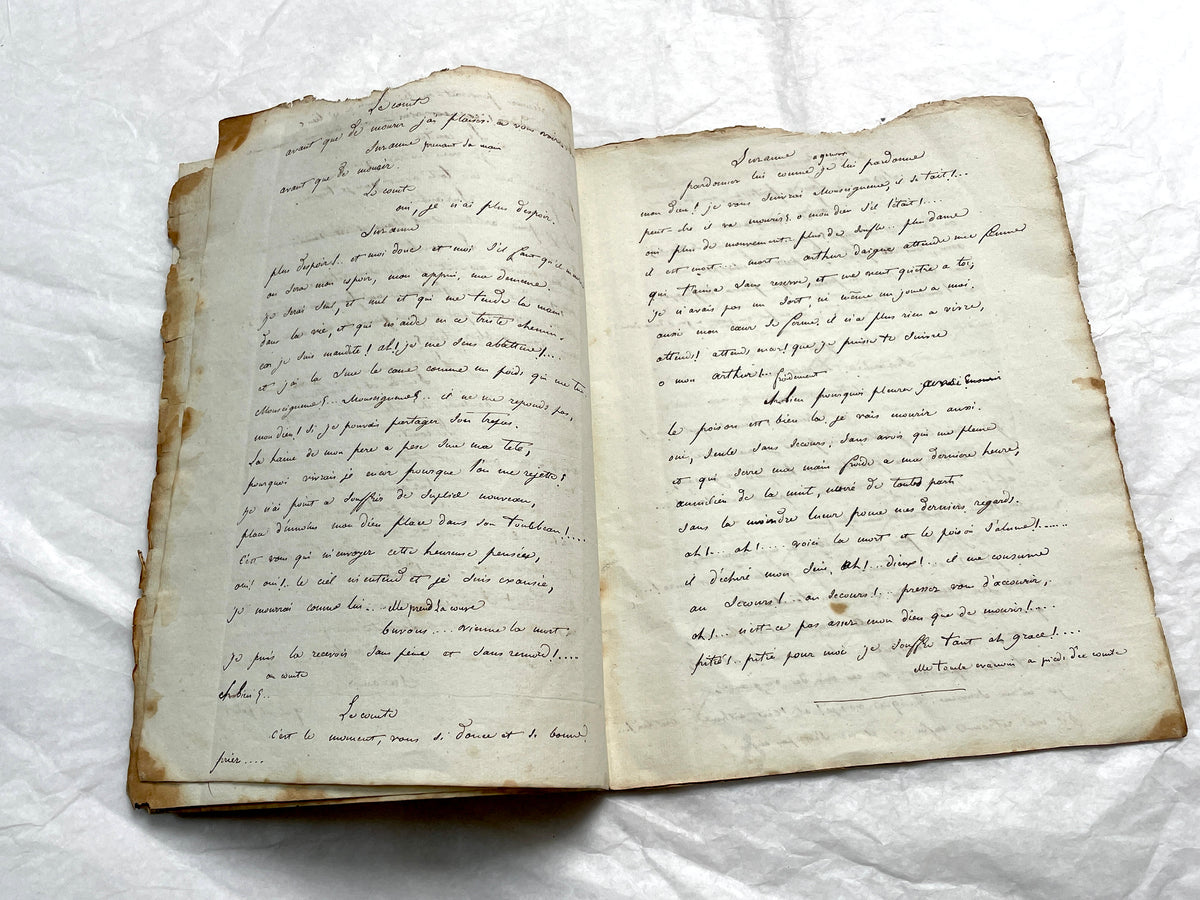 Le comte
avant que de mourir j'ai plaisir a vous
Suzanne prenant sa main
avant que de mourir.
Le comte
oui, je n'ai plus d'espoir
Suzanne
plus d'espoir!.. et moi donc et moi s'il faut qu'il
ou sera mon espoir, mon appui, ma demeure.
je serai seul, et nul et qui me tende la main
dans la vie, et qui m'aide en ce triste chemin,
car je suis maudite! ah! je me sens abbattue!...
et j'ai la sur le cœur comme un poids qui me tue
Monseigneur.. Monseigneur.. il ne me reponds pas,
mon dieu! si je pouvai partager son trepas.
la haine de mon pere a pesé sur ma tete,
pourquoi vivrai je encor pourque l'on me rejette?
je n'ai point a souffrir de suplice nouveau,
place d'umoins mon dieu place dans son tombbeau!....
c'est vous qui m'envoyer cette heureuse pensée,
oui! oui!. le ciel m'entend et je suis exausée,
je mourrai comme lui... elle prend la coupe
buvons.... vienne la mort.
je puis la recevoir sans peine et sans remord!....
au comte
Le comte
c'est le moment, vous si douce et si bonne
prier....
Suzanne a genoux
pardonner lui comme je lui pardonne
mon dieu! je vous suivrai Monseigneur, il se tait!...
peut etre il va mourir. o mon dieu s'il l'était!....
oui plus de mouvement. plus de souffle.. plus d'ame
il est mort... mort arthur daigne attendre une femme
qui t'aima sans reserve, et ne veut quitre a toi;
je n'avais pas un sort, ni même un jour a moi.
aussi mon cœur se ferme, il n'a plus rien a vivre,
attends! attends moi! que je puisse te suivre
o mon arthur!.. froidement
eh bien pourquoi pleurer
le poison est bien la je vais mourir aussi.
oui, seule sans secours, sans avoir qui me pleure
et qui serre ma main froide a ma derniere heure,
aumilieu de la nuit, de toutes parts
sans la moindre lueur pour mes derniers regards.
ah!... ah!.... voici la mort et le poison s'alume!.....
il d'échire mon sein, ah!.. dieux!... il me consume
au secours!... au secours!... presser vous d'accourir,
oh!... n'est-ce pas assez mon dieu que de mourir!....
pitié!.. pitié pour moi je souffre tant ah grace!....
elle tombe evanouie a pieds d'ce comte